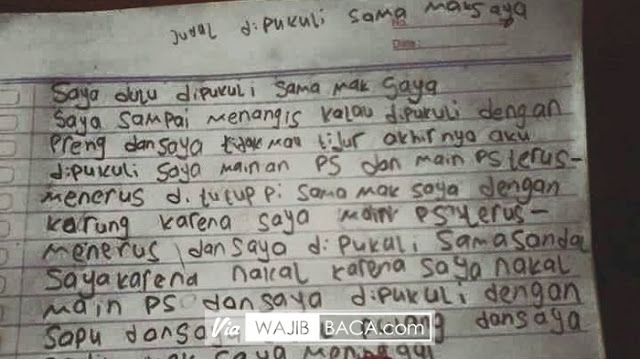 Judul dipukuli sama mak saya
No.
Date:
Saya dulu dipukuli sama mak saya
Saya sampai menangis kalau dipukuli dengan
Preng dan saya tidak mau tidur akhirnya aku
dipukuli saya mainan PS dan main PS terus-
menerus di tutuppi sama mak saya dengan
karung karena saya main PS terus-
menerus dan saya di pukuli sama sandal
Saya karena nakal karena saya nakal
main PS dan saya dipukuli dengan
Sapu dan saya pulang dan saya
mak saya
Via WAJIB BACA.com